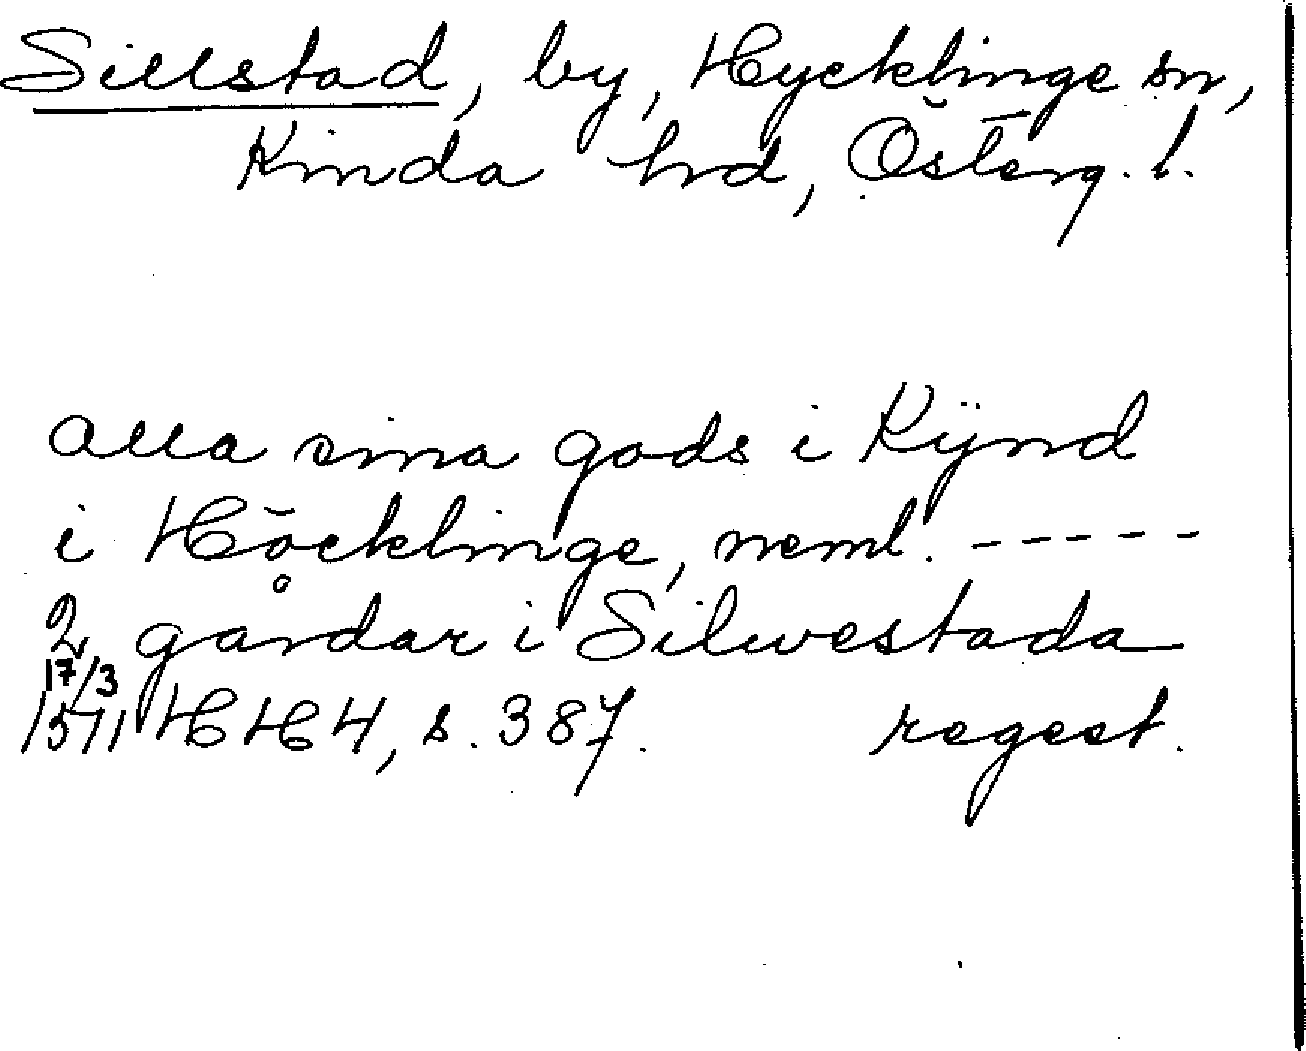 Sillstad, by, Hycklinge sn,
Kinda hd, Österg. l.
alla sina gods i Kÿnd
i Höcklinge, neml. -----
2 gårdar i Silwestada
17/3
1511 HH 4, s. 387. regest.